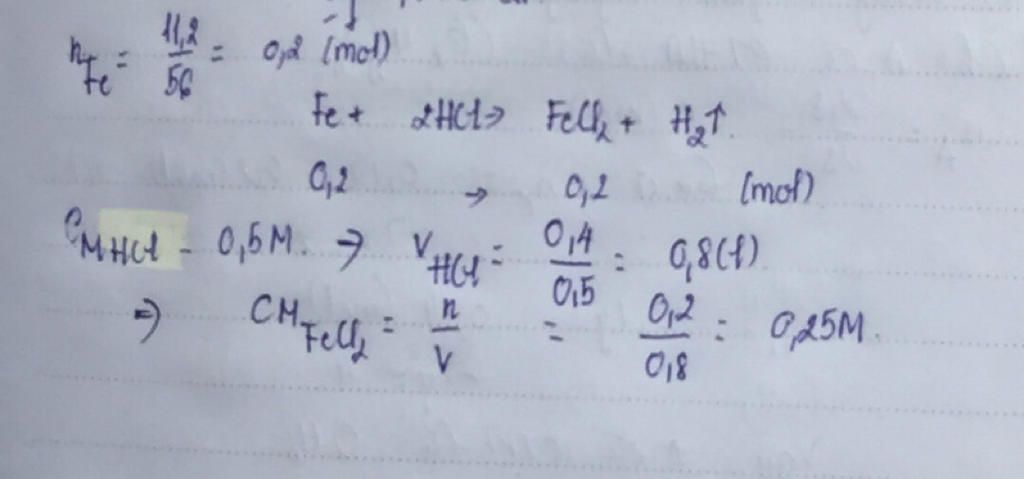 nFe = 11,2/56 = 0,2 (mol)
Fe + 2HCl → FeCl₂ + H₂↑
0,2 → 0,2 (mol)
CM HCl - 0,5M. ⇒ VHCl = 0,4/0,5 = 0,8(l)
⇒ CM FeCl₂ = n/V = 0,2/0,8 = 0,25M.